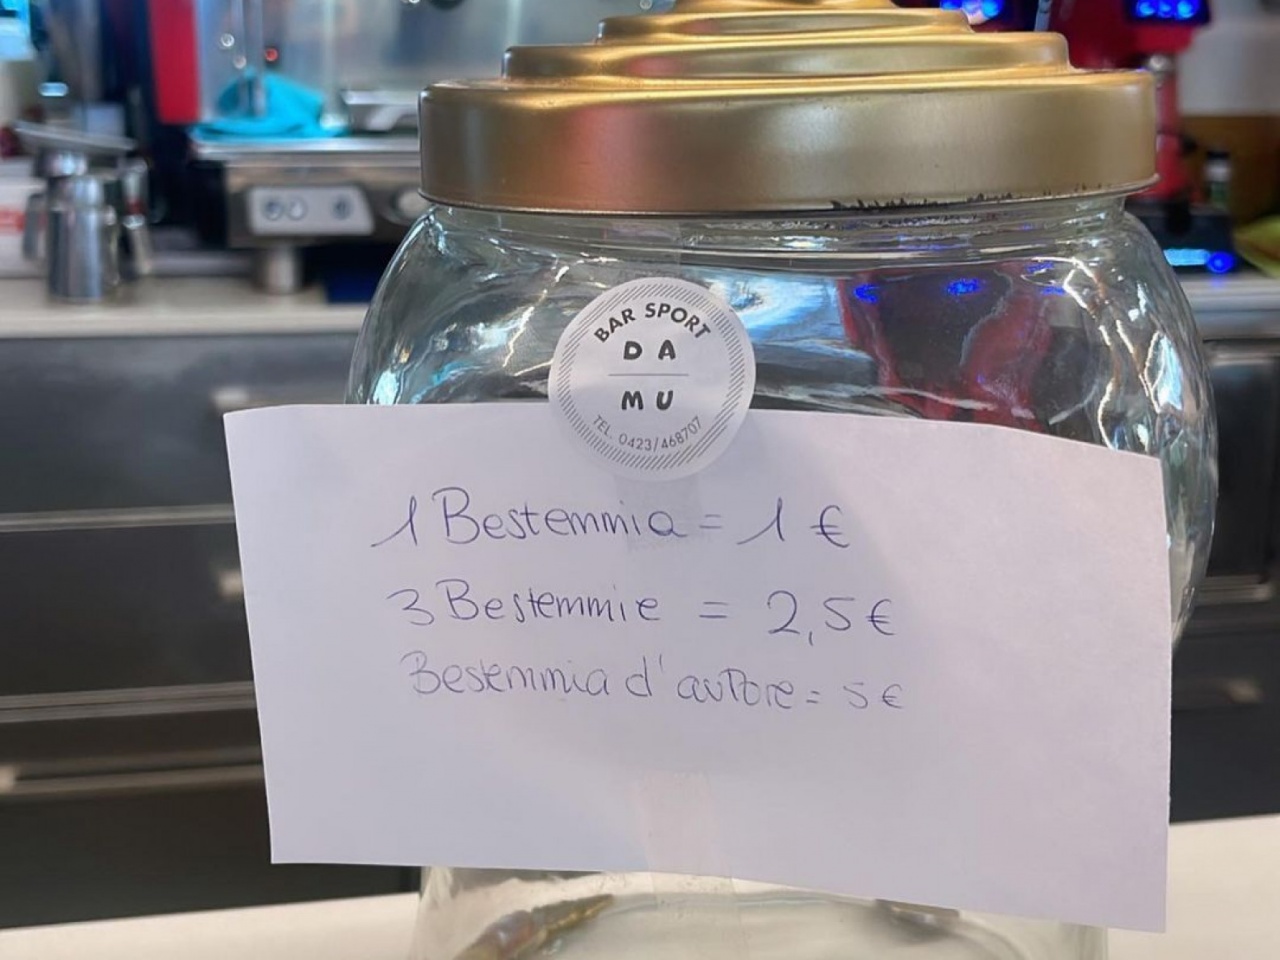 BAR SPORT
D A
M U
TEL. 0423/468707
1 Bestemmia = 1 €
3 Bestemmie = 2,5 €
Bestemmia d'autore = 5 €